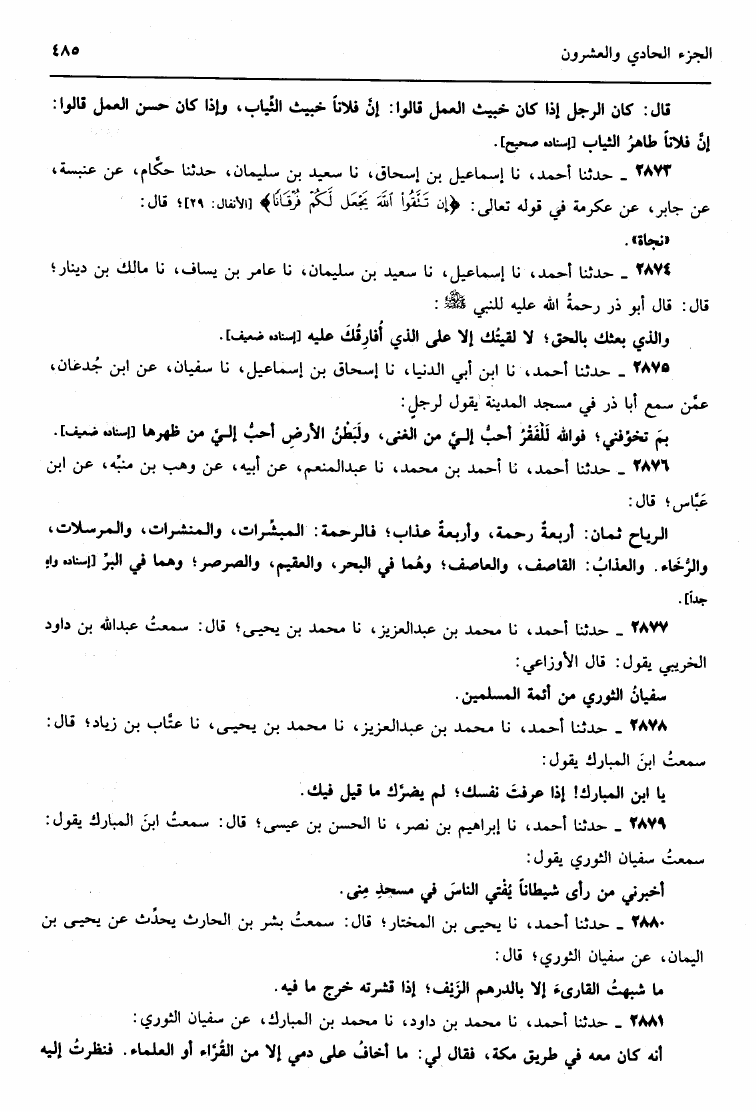 الجزء الحادي والعشرون ٤٨٥
قال: كان الرجل إذا كان خبيث العمل قالوا: إنَّ فلاناً خبيث الثِّياب، وإذا كان حسن العمل قالوا:
إنَّ فلاناً طاهرُ الثياب [إسناده صحيح].
٢٨٧٣ ـ حدثنا أحمد، نا إسماعيل بن إسحاق، نا سعيد بن سليمان، حدثنا حكَّام، عن عنبسة،
عن جابر، عن عكرمة في قوله تعالى: ﴿إِن تَتَّقُوا۟ ٱللَّهَ يَجْعَل لَّكُمْ فُرْقَانًا﴾ [الأنفال: ٢٩]؛ قال:
«نجاة».
٢٨٧٤ ـ حدثنا أحمد، نا إسماعيل، نا سعيد بن سليمان، نا عامر بن يساف، نا مالك بن دينار؛
قال: قال أبو ذر رحمةُ الله عليه للنبي ﷺ:
والذي بعثك بالحق؛ لا لقيتُك إلا على الذي أُفارِقُكَ عليه [إسناده ضعيف].
٢٨٧٥ ـ حدثنا أحمد، نا ابن أبي الدنيا، نا إسحاق بن إسماعيل، نا سفيان، عن ابن جُدعان،
عمَّن سمع أبا ذر في مسجد المدينة يقول لرجلٍ:
بمَ تخوِّفني؛ فوالله لَلْفَقْرُ أحبُّ إليَّ من الغنى، ولَبَطْنُ الأرضِ أحبُّ إليَّ من ظهرها [إسناده ضعيف].
٢٨٧٦ ـ حدثنا أحمد، نا أحمد بن محمد، نا عبدالمنعم، عن أبيه، عن وهب بن منبِّه، عن ابن
عَبَّاس؛ قال:
الرياح ثمان: أربعةٌ رحمة، وأربعةٌ عذاب؛ فالرحمة: المبشِّرات، والمنشرات، والمرسلات،
والرُّخَاء. والعذابُ: القاصف، والعاصف؛ وهُما في البحر، والعقيم، والصرصر؛ وهما في البرِّ [إسناده واهٍ
جداً].
٢٨٧٧ ـ حدثنا أحمد، نا محمد بن عبدالعزيز، نا محمد بن يحيى؛ قال: سمعتُ عبدالله بن داود
الخريبي يقول: قال الأوزاعي:
سفيانُ الثوري من أئمة المسلمين.
٢٨٧٨ ـ حدثنا أحمد، نا محمد بن عبدالعزيز، نا محمد بن يحيى، نا عتَّاب بن زياد؛ قال:
سمعتُ ابنَ المبارك يقول:
يا ابن المبارك! إذا عرفتَ نفسك؛ لم يضرَّك ما قيل فيك.
٢٨٧٩ ـ حدثنا أحمد، نا إبراهيم بن نصر، نا الحسن بن عيسى؛ قال: سمعتُ ابنَ المبارك يقول:
سمعتُ سفيان الثوري يقول:
أخبرني من رأى شيطاناً يُفْتي الناسَ في مسجدِ مِنى.
٢٨٨٠ ـ حدثنا أحمد، نا يحيى بن المختار؛ قال: سمعتُ بشر بن الحارث يحدِّث عن يحيى بن
اليمان، عن سفيان الثوري؛ قال:
ما شبهتُ القارىءَ إلا بالدرهم الزَيْف؛ إذا قشرته خرج ما فيه.
٢٨٨١ ـ حدثنا أحمد، نا محمد بن داود، نا محمد بن المبارك، عن سفيان الثوري:
أنه كان معه في طريق مكة، فقال لي: ما أخافُ على دمي إلا من القُرَّاء أو العلماء. فنظرتُ إليه